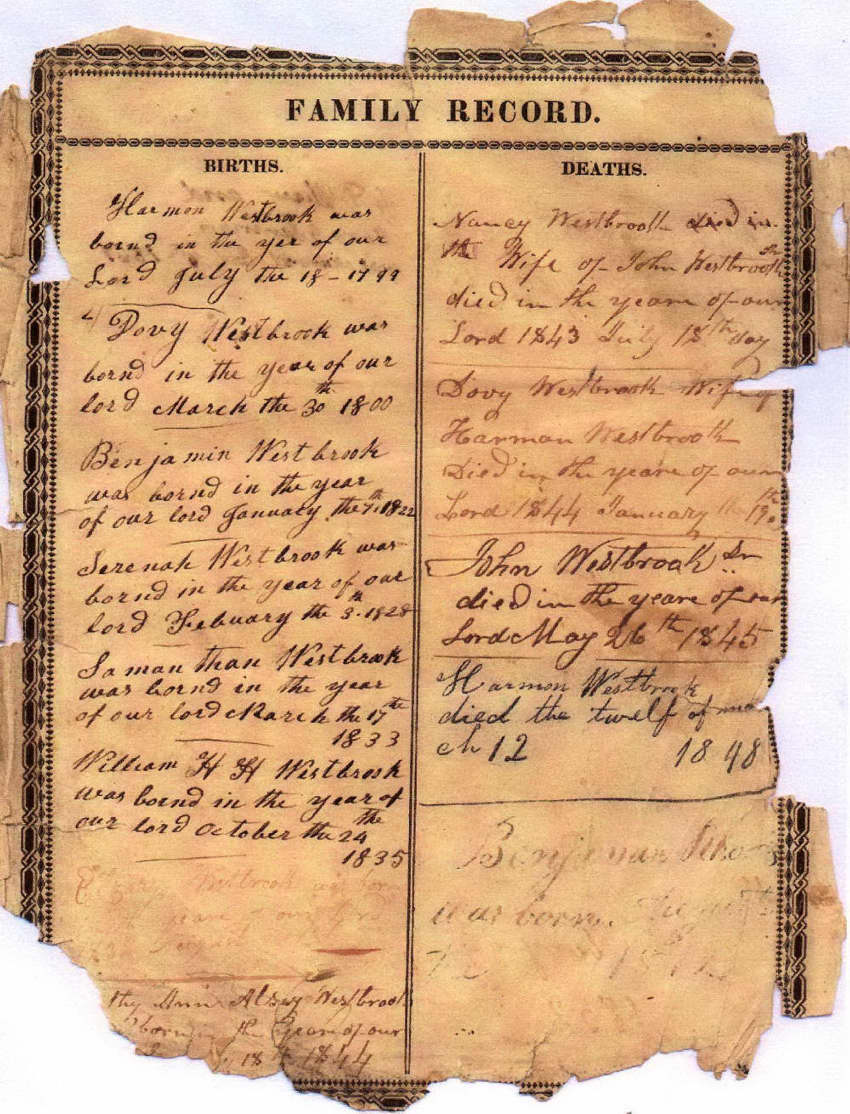 FAMILY RECORD.
BIRTHS.
Harmon Westbrook was
bornd in the yer of our
Lord July the 18 - 1799
Dovy Westbrook was
bornd in the year of our
lord March the 30th 1800
Benjamin Westbrook
was bornd in the year
of our lord January the 7th 1822
Serenah Westbrook was
bornd in the year of our
lord Febuary the 3. 1828
Samanthan Westbrook
was bornd in the year
of our lord March the 17th
1833
William H H Westbrook
was bornd in the year of
our lord October the 24th
1835
Westbrook was born
yeare of our Lord
thy Ann Alsey Westbrook
born in the Year of our
18th 1844
DEATHS.
Nancy Westbrook died in
the Wife of John Westbrook Sr
died in the yeare of our
Lord 1843 July 18th day
Dovy Westbrook Wife of
Harman Westbrook
Died in the yeare of our
Lord 1844 January the 19th
John Westbrook Sr
died in the yeare of our
Lord May 26th 1845
Harmon Westbrook
died the twelf of mar
ch 12 1848
was born. August